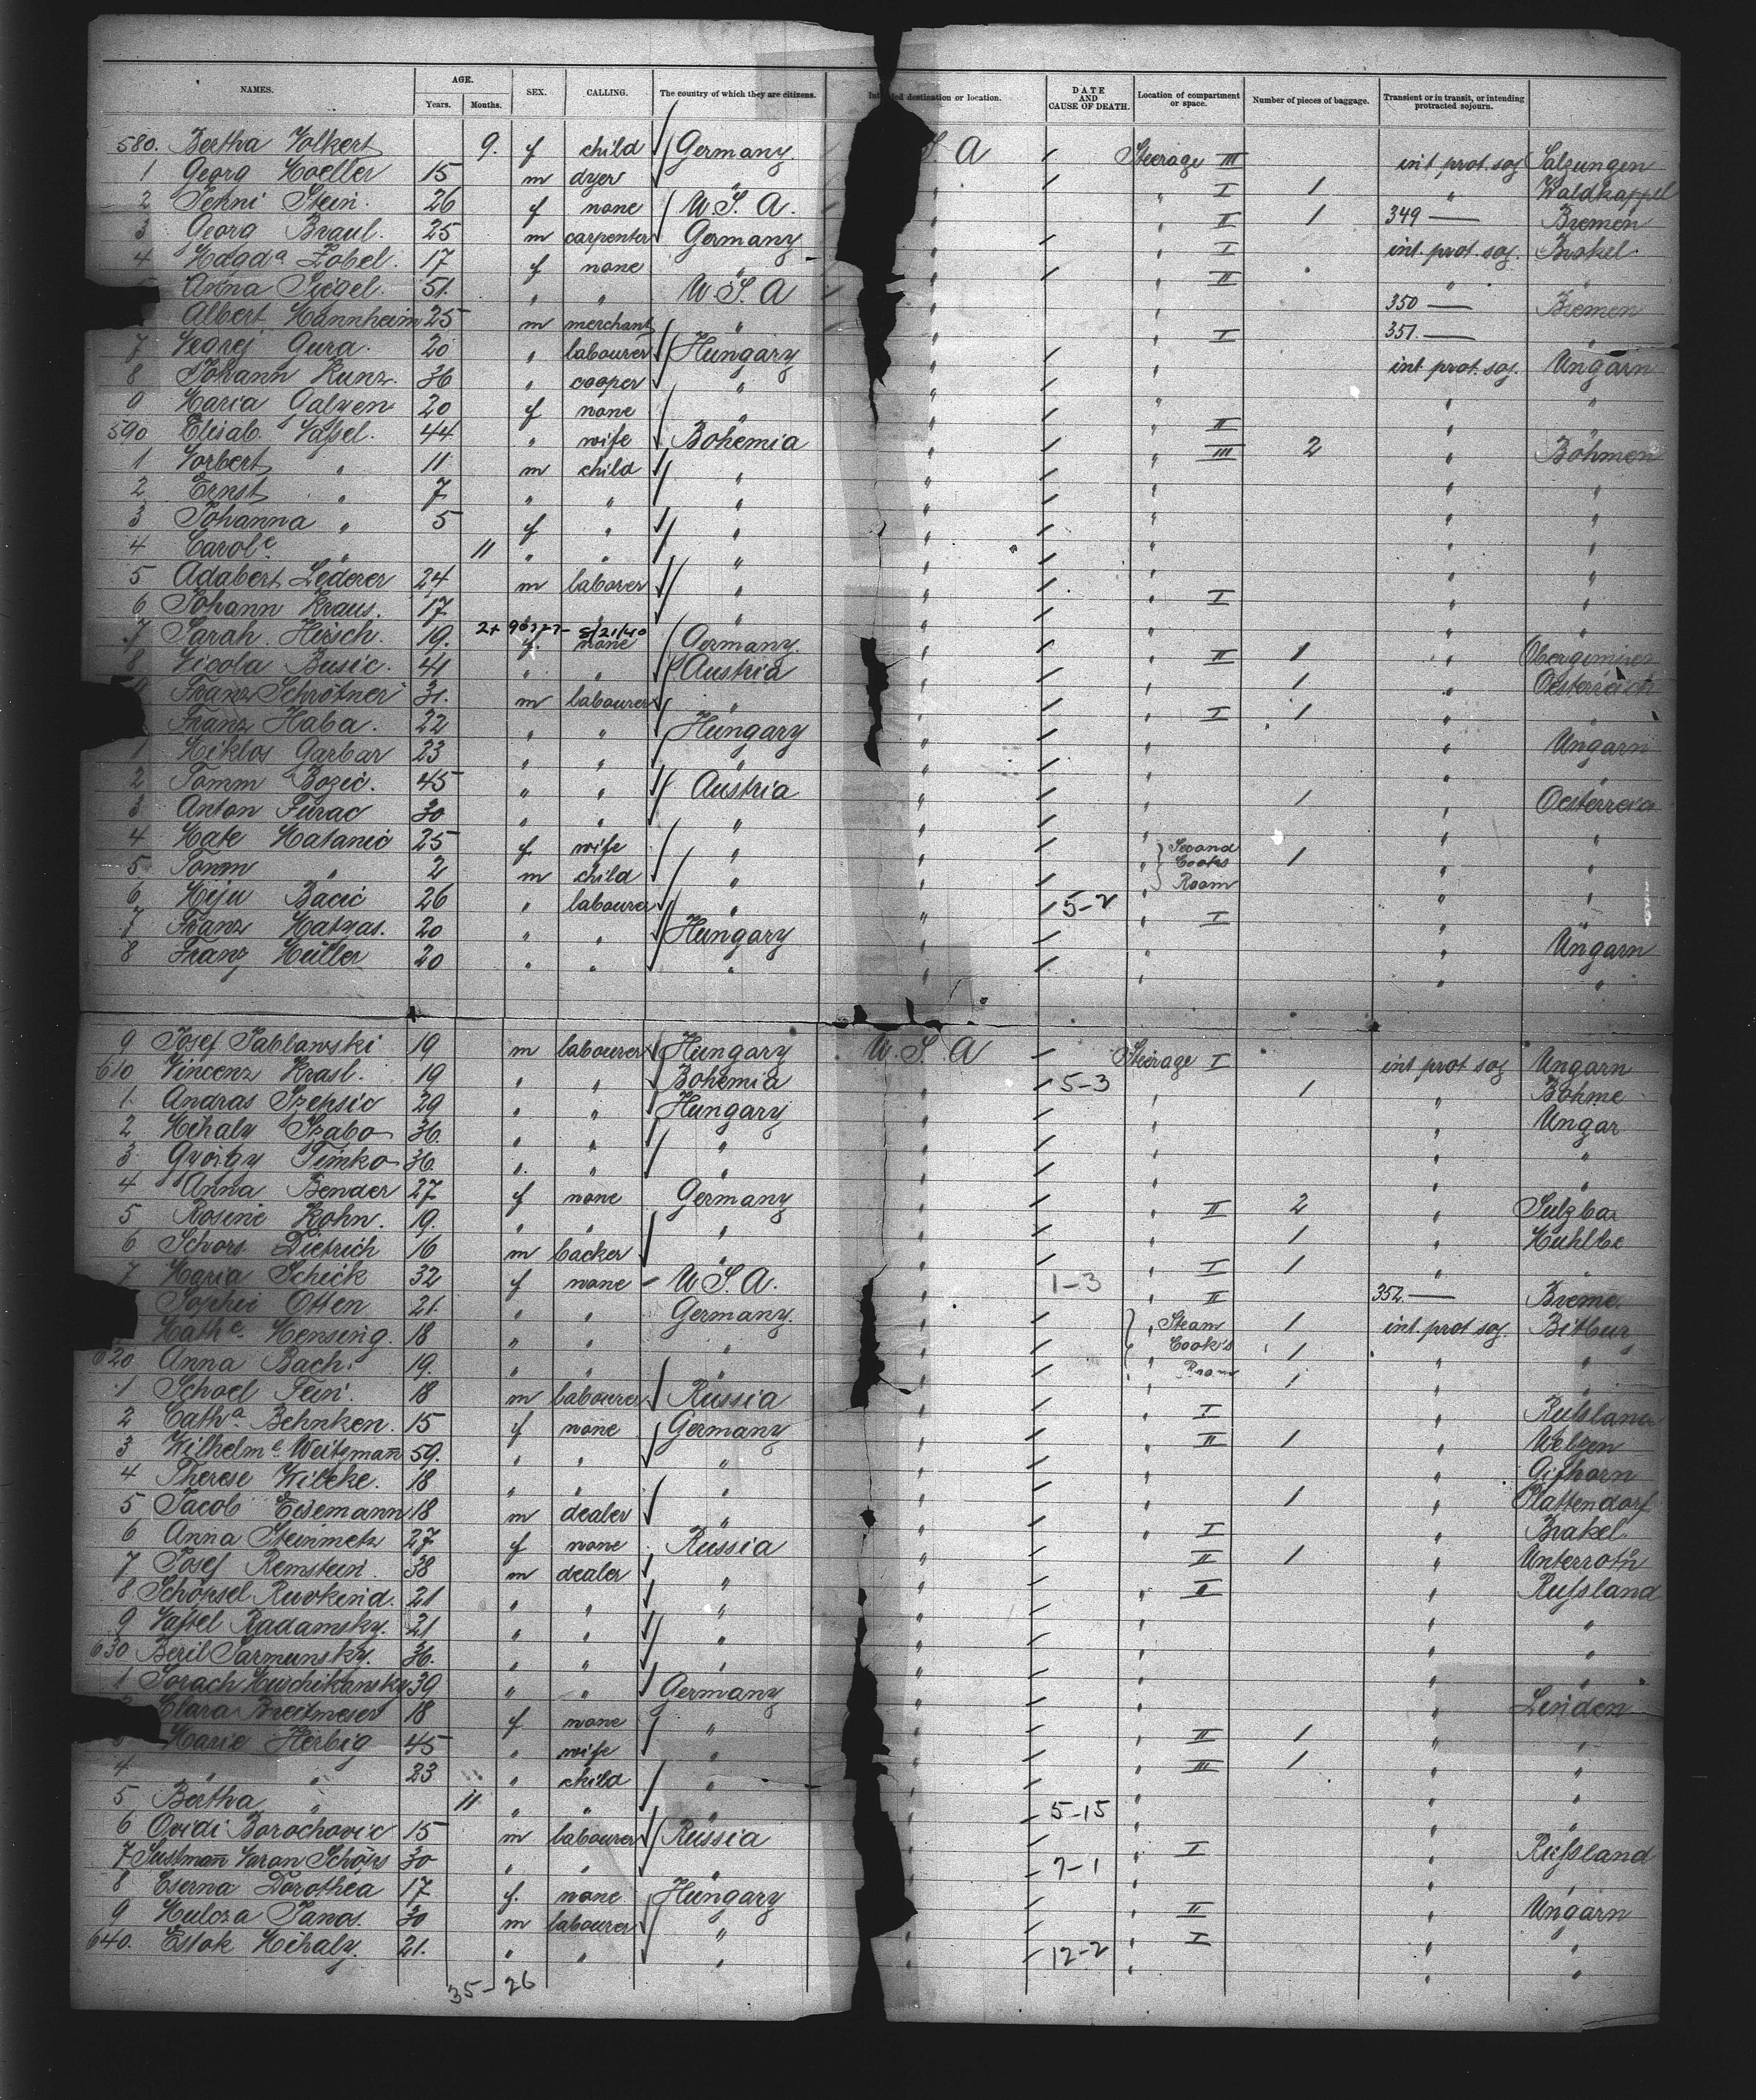 NAMES. AGE. Years. Months. SEX. CALLING. The country of which they are citizens. Intended destination or location. DATE AND CAUSE OF DEATH. Location of compartment or space. Number of pieces of baggage. Transient or in transit, or intending protracted sojourn.
580. Bertha Volkert 9. f child Germany S. A Steerage III int prot. soj Salzungen
1 Georg Moeller 15 m dyer " " I 1 " Waldkappel
2 Jenni Stein. 26 f none U. S. A. " " II 1 349 — Bremen
3 Georg Braul. 25 m carpenter Germany " " I int. prot soj. Brakel
4 Magda Zobel. 17 f none " " " II "
Anna Siegel. 51. " " U. S. A " " 350 — Bremen
Albert Mannheim 25 m merchant " " " I 351. — "
7 Gura. 20 " labourer Hungary " " int prot. soj. Ungarn
8 Johann Kunz. 36 " cooper " " " " "
9 Maria Galyen 20 f none " " " II " "
590 Elisab. Nassel. 44 " wife Bohemia " " III 2 " Böhmen
1 Norbert " 11 m child " " " " "
2 Ernst " 7 " " " " " " "
3 Johanna " 5 f " " " " " "
4 Carole " 11 " " " " " " "
5 Adabert Lederer 24 m laborer " " " I " "
6 Johann Kraus. 17. " " " " " "
7 Sarah. Hirsch. 19. 8/21/40 f. none Germany. " " II 1 "
8 Nicola Busic. 41 " " Austria " " 1 " Oesterreich
Franz Schrötner 31. m labourer " " " I 1 " "
Franz Haba. 22 " " Hungary " " " Ungarn
1 Miklos Garbar 23 " " " " " " "
2 Tomm Bozic. 45 " " Austria " " 1 " Oesterreich
3 Anton Furac 30 " " " " " " "
4 Mate Matanic 25 f wife " " " Second Cooks Room 1 " "
5 Tomm " 2 m child " " " " "
6 Miju Bacic 26 " labourer " " 5-2 " I " "
7 Franz Matyas. 20 " " Hungary " " " Ungarn
8 Franz Müller 20 " " " " " " "
9 Josef Jablawski 19 m labourer Hungary U. S. A Steerage I int prot soj Ungarn
610 Vincenz Krasl. 19 " " Bohemia " 5-3 " 1 " Böhme
1. Andras Szepsic 29 " " Hungary " " " Ungar
2 Mihaly Szabo 36. " " " " " " "
3 György Simko 36. " " " " " " "
4 Anna Bender 27 f none Germany " " II 2 " Sulzba
5 Rosine Kohn. 19. " " " " " 1 " Mühlbe
6 Schors Dietrich 16 m backer " " " I 1 " "
7 Maria Schick 32 f none U. S. A. " 1-3 " II 352 — Breme
Sophie Otten 21. " " Germany. " " Steam Cook's Room 1 int. prot soj. Bitbur
Mathe. Mensing. 18 " " " " " 1 " "
620 Anna Bach. 19. " " " " " 1 " "
1 Schoel Fein. 18 m labourer Russia " " I " Russland
2 Catha. Behnken. 15 f none Germany " " II 1 " Uelzen
3 Wilhelme. Weitzmann 59. " " " " " " Gifhorn
4 Therese Wilcke. 18 " " " " " 1 " Plattendorf
5 Jacob Eisemann 18 m dealer " " " I " Brakel
6 Anna Steinmetz 27 f none Russia " " II 1 " Unterroth
7 Josef Remstein. 38 m dealer " " " II " Russland
8 Schöpsel Ruvkind. 21 " " " " " " "
9 Radamsky. 21 " " " " " " "
630 Beril Sarmunsky. 36. " " " " " " "
1 39 " " Germany " " " Linden
Clara Breitmeser 18 f none " " " II 1 " "
Marie Herbig 45 " wife " " " III 1 " "
4 " " 23 " child " " " " "
5 Bertha " 11 " " " " 5-15 " " "
6 Ovidi Borochovic 15 m labourer Russia " " I " Russland
7 30 " " " " 7-1 " " "
8 Eserna Dorothea 17 f. none Hungary " " II " Ungarn
9 Janos. 30 m labourer " " " I " "
640. Estok Mihaly. 21. " " " " 12-2 " " "
35-26